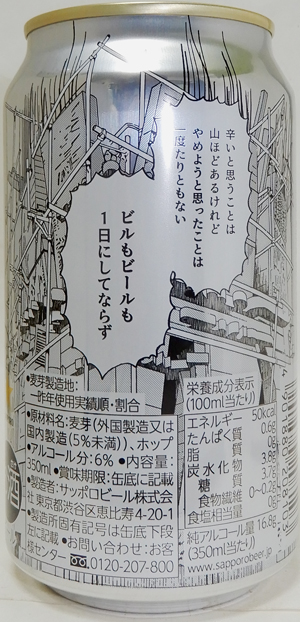 辛いと思うことは
山ほどあるけれど
やめようと思ったことは
一度たりともない
ビルもビールも
1日にしてならず
●麦芽製造地:
一昨年使用実績順・割合
●原材料名:麦芽(外国製造又は
国内製造(5%未満))、ホップ
●アルコール分:6% ●内容量:
350ml●賞味期限:缶底に記載
●製造者:サッポロビール株式会
社 東京都渋谷区恵比寿4-20-1
●製造所固有記号は缶底下段
に記載 ●お問い合わせ:お客
様センター 0120-207-800
栄養成分表示
(100ml当たり)
エネルギー 50kcal
たんぱく質 0.6g
脂質 0g
炭水化物 3.8g
糖質 3.7g
食物繊維 0~0.2g
食塩相当量 0g
純アルコール量 16.8g
(350ml当たり)
www.sapporobeer.jp
酒